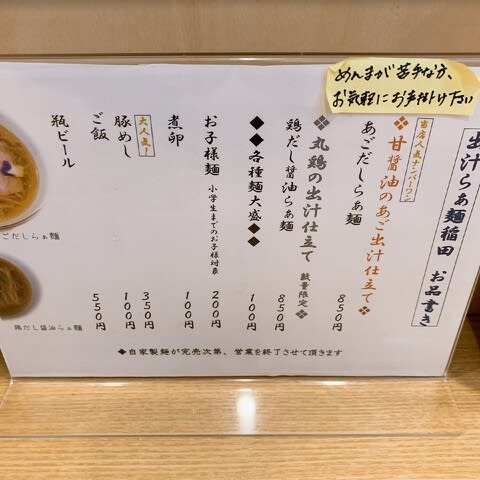 めんまが苦手な方、
お気軽にお声掛け下さい
出汁らぁ麺稲田 お品書き
当店人気ナンバーワン
❖甘醤油のあご出汁仕立て❖
あごだしらぁ麺 850円
❖丸鶏の出汁仕立て 数量限定❖
鶏だし醤油らぁ麺 850円
◆◆各種麺大盛◆◆ 100円
お子様麺 小学生までのお子様対象 200円
煮卵 100円
大人気!
豚めし 350円
ご飯 100円
瓶ビール 550円
ごだしらぁ麺
鶏だし醤油らぁ麺
◆自家製麺が完売次第、営業を終了させて頂きます